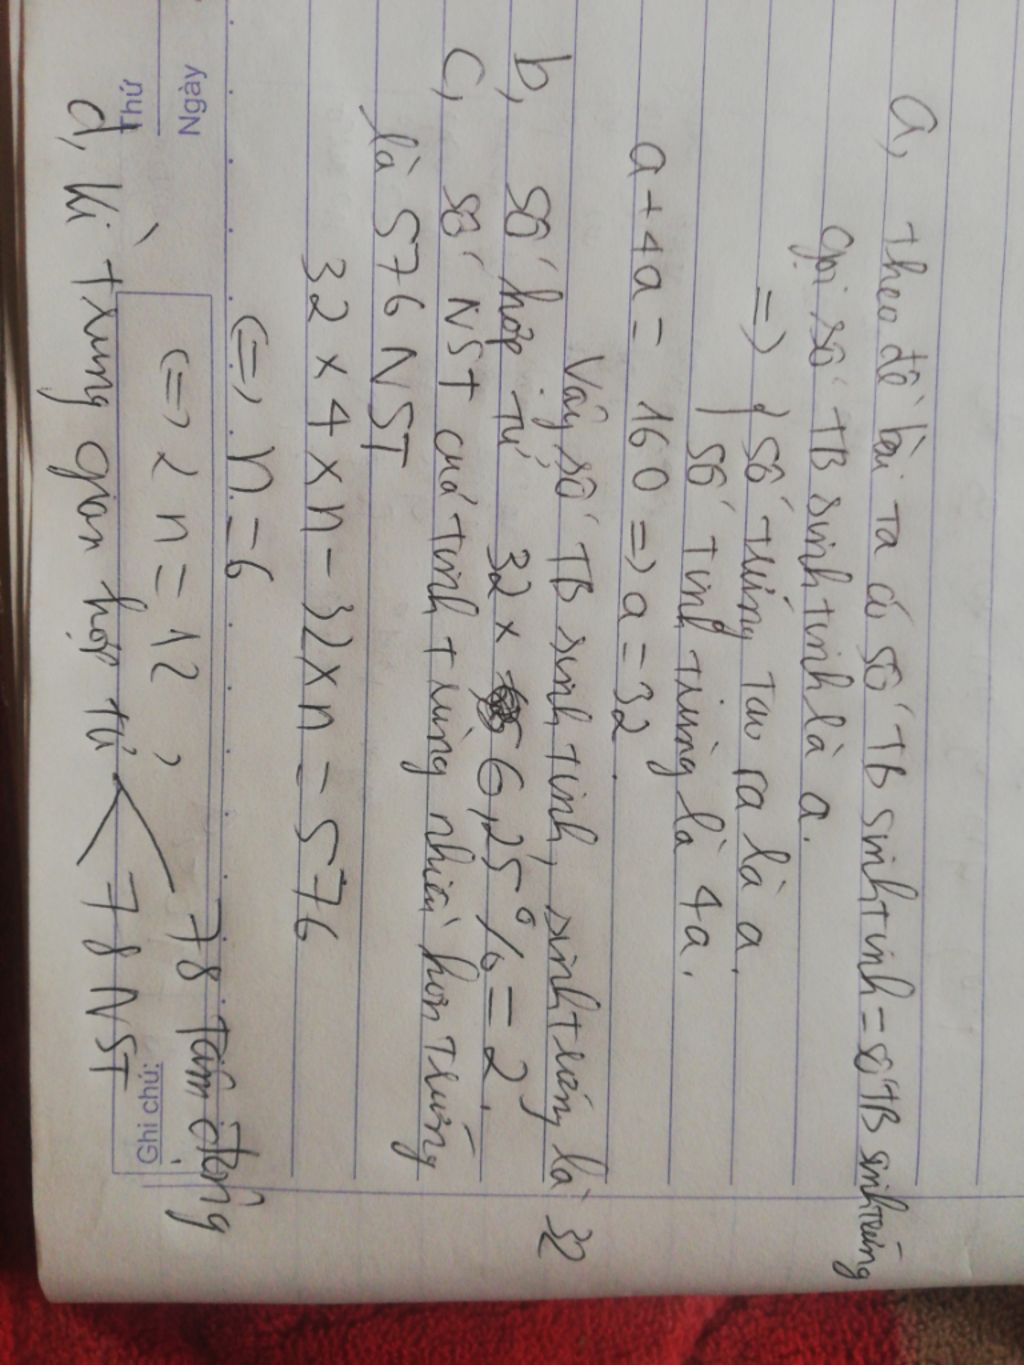 a, theo đề bài ta có số TB sinh tinh = số TB sinh trứng
gọi số TB sinh tinh là a.
=> { số trứng tạo ra là a.
số tinh trùng là 4a.
a + 4a = 160 => a = 32.
Vậy số TB sinh tinh, sinh trứng là 32
b, số hợp tử 32 x 6,25% = 2.
c, số NST của tinh trùng nhiều hơn trứng
là 576 NST
32 x 4 x n - 32 x n = 576
<=> n = 6
<=> 2n = 12,
d, kì trung gian hợp tử
78 tâm động
78 NST
Thứ
Ngày
Ghi chú: